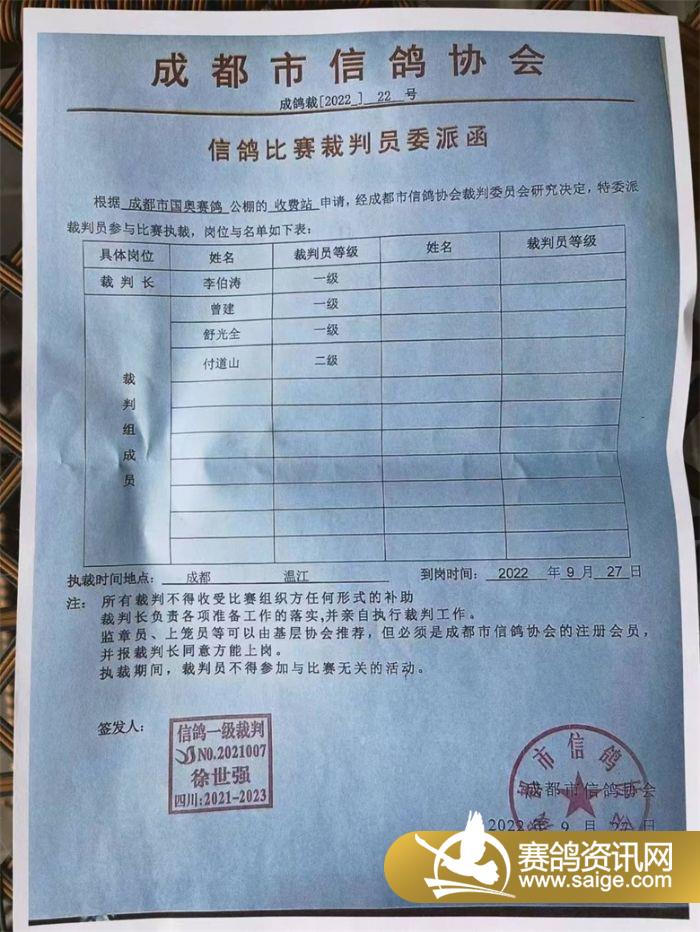 成都市信鸽协会
成鸽裁[2022 ] 22 号
信鸽比赛裁判员委派函
根据 成都市国奥赛鸽 公棚的 收费站 申请，经成都市信鸽协会裁判委员会研究决定，特委派
裁判员参与比赛执裁，岗位与名单如下表：
具体岗位 姓名 裁判员等级 姓名 裁判员等级
裁判长 李伯涛 一级
裁判组成员
曾建 一级
舒光全 一级
付道山 二级
执裁时间地点： 成都 温江 到岗时间： 2022 年 9 月 27 日
注： 所有裁判不得收受比赛组织方任何形式的补助
裁判长负责各项准备工作的落实,并亲自执行裁判工作。
监章员、上笼员等可以由基层协会推荐，但必须是成都市信鸽协会的注册会员，
并报裁判长同意方能上岗。
执裁期间，裁判员不得参加与比赛无关的活动。
签发人：
信鸽一级裁判
NO.2021007
徐世强
四川:2021-2023
成都市信鸽协会
2022 年 9 月 27 日
赛鸽资讯网
www.saige.com